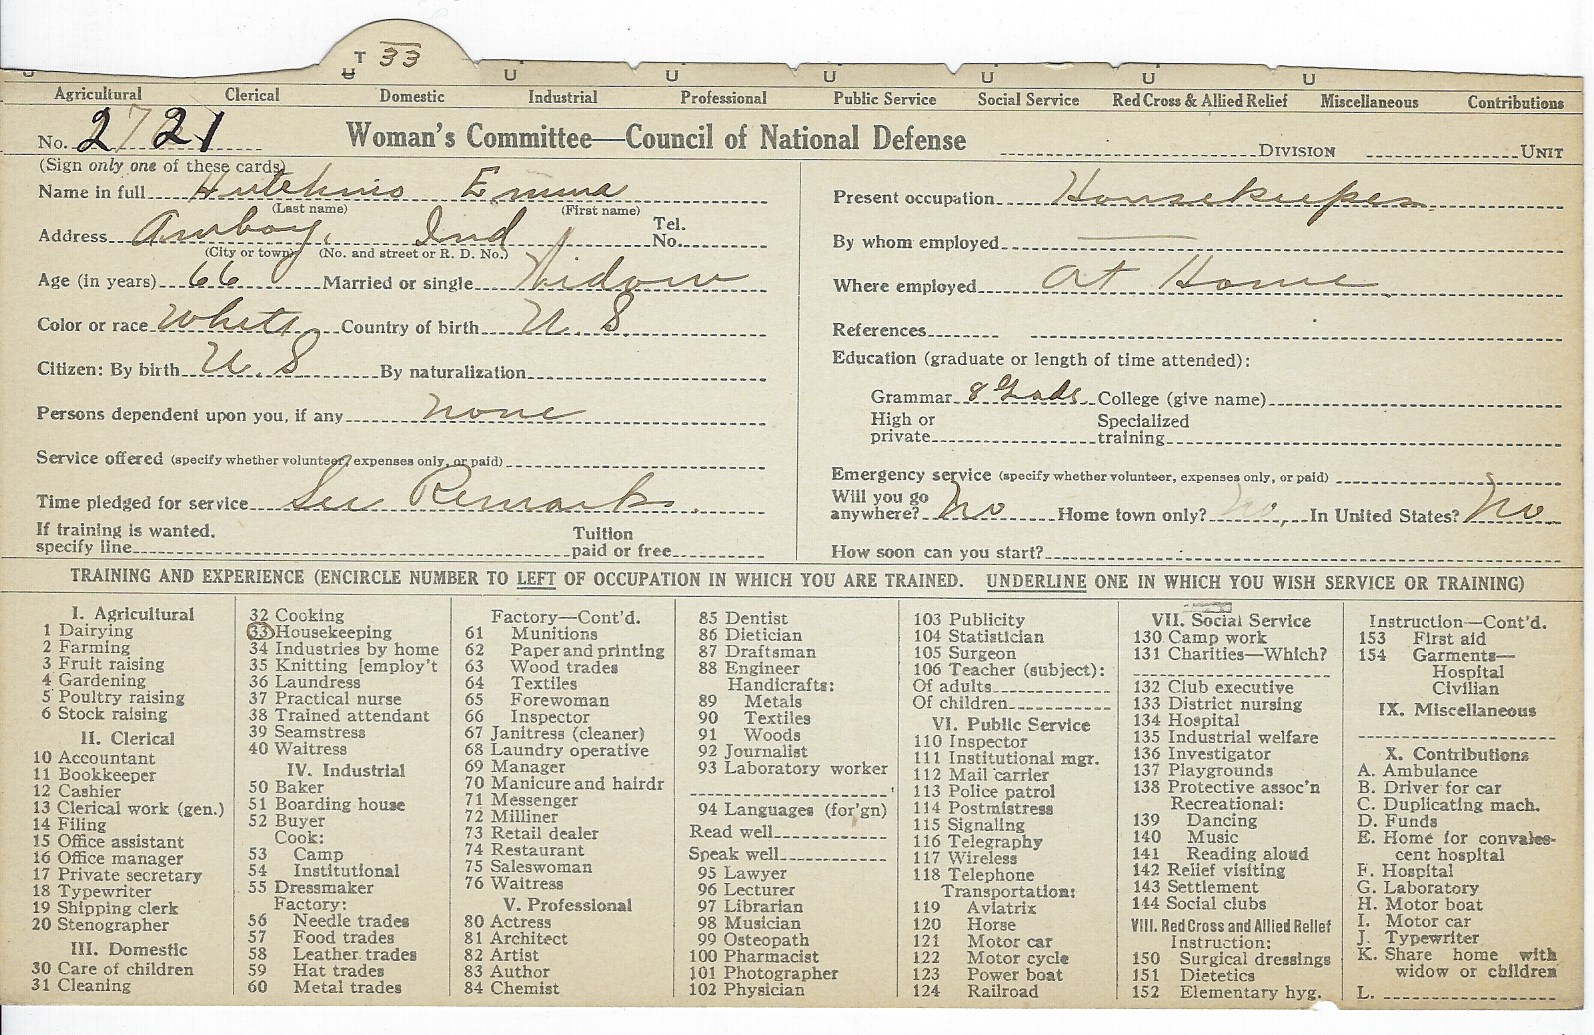 T 33
U U U U U U U U
Agricultural Clerical Domestic Industrial Professional Public Service Social Service Red Cross & Allied Relief Miscellaneous Contributions
No. 2721 Woman's Committee—Council of National Defense DIVISION UNIT
(Sign only one of these cards)
Name in full Hutchins Emma
(Last name) (First name)
Address Amboy, Ind Tel. No.
(City or town) (No. and street or R. D. No.)
Age (in years) 66 Married or single Widow
Color or race White Country of birth U. S.
Citizen: By birth U. S By naturalization
Persons dependent upon you, if any none
Service offered (specify whether volunteer, expenses only, or paid)
Time pledged for service See Remarks.
If training is wanted, specify line Tuition paid or free
Present occupation Housekeeper
By whom employed
Where employed At Home
References
Education (graduate or length of time attended):
Grammar 8 Grade College (give name)
High or private Specialized training
Emergency service (specify whether volunteer, expenses only, or paid)
Will you go anywhere? No Home town only? No, In United States? No
How soon can you start?
TRAINING AND EXPERIENCE (ENCIRCLE NUMBER TO LEFT OF OCCUPATION IN WHICH YOU ARE TRAINED. UNDERLINE ONE IN WHICH YOU WISH SERVICE OR TRAINING)
I. Agricultural
1 Dairying
2 Farming
3 Fruit raising
4 Gardening
5 Poultry raising
6 Stock raising
II. Clerical
10 Accountant
11 Bookkeeper
12 Cashier
13 Clerical work (gen.)
14 Filing
15 Office assistant
16 Office manager
17 Private secretary
18 Typewriter
19 Shipping clerk
20 Stenographer
III. Domestic
30 Care of children
31 Cleaning
32 Cooking
33 Housekeeping
34 Industries by home
35 Knitting [employ't
36 Laundress
37 Practical nurse
38 Trained attendant
39 Seamstress
40 Waitress
IV. Industrial
50 Baker
51 Boarding house
52 Buyer
Cook:
53 Camp
54 Institutional
55 Dressmaker
Factory:
56 Needle trades
57 Food trades
58 Leather trades
59 Hat trades
60 Metal trades
Factory—Cont'd.
61 Munitions
62 Paper and printing
63 Wood trades
64 Textiles
65 Forewoman
66 Inspector
67 Janitress (cleaner)
68 Laundry operative
69 Manager
70 Manicure and hairdr
71 Messenger
72 Milliner
73 Retail dealer
74 Restaurant
75 Saleswoman
76 Waitress
V. Professional
80 Actress
81 Architect
82 Artist
83 Author
84 Chemist
85 Dentist
86 Dietician
87 Draftsman
88 Engineer
Handicrafts:
89 Metals
90 Textiles
91 Woods
92 Journalist
93 Laboratory worker
94 Languages (for'gn)
Read well
Speak well
95 Lawyer
96 Lecturer
97 Librarian
98 Musician
99 Osteopath
100 Pharmacist
101 Photographer
102 Physician
103 Publicity
104 Statistician
105 Surgeon
106 Teacher (subject):
Of adults
Of children
VI. Public Service
110 Inspector
111 Institutional mgr.
112 Mail carrier
113 Police patrol
114 Postmistress
115 Signaling
116 Telegraphy
117 Wireless
118 Telephone
Transportation:
119 Aviatrix
120 Horse
121 Motor car
122 Motor cycle
123 Power boat
124 Railroad
VII. Social Service
130 Camp work
131 Charities—Which?
132 Club executive
133 District nursing
134 Hospital
135 Industrial welfare
136 Investigator
137 Playgrounds
138 Protective assoc'n
Recreational:
139 Dancing
140 Music
141 Reading aloud
142 Relief visiting
143 Settlement
144 Social clubs
VIII. Red Cross and Allied Relief
Instruction:
150 Surgical dressings
151 Dietetics
152 Elementary hyg.
Instruction—Cont'd.
153 First aid
154 Garments—
Hospital
Civilian
IX. Miscellaneous
X. Contributions
A. Ambulance
B. Driver for car
C. Duplicating mach.
D. Funds
E. Home for convales-
cent hospital
F. Hospital
G. Laboratory
H. Motor boat
I. Motor car
J. Typewriter
K. Share home with
widow or children
L.